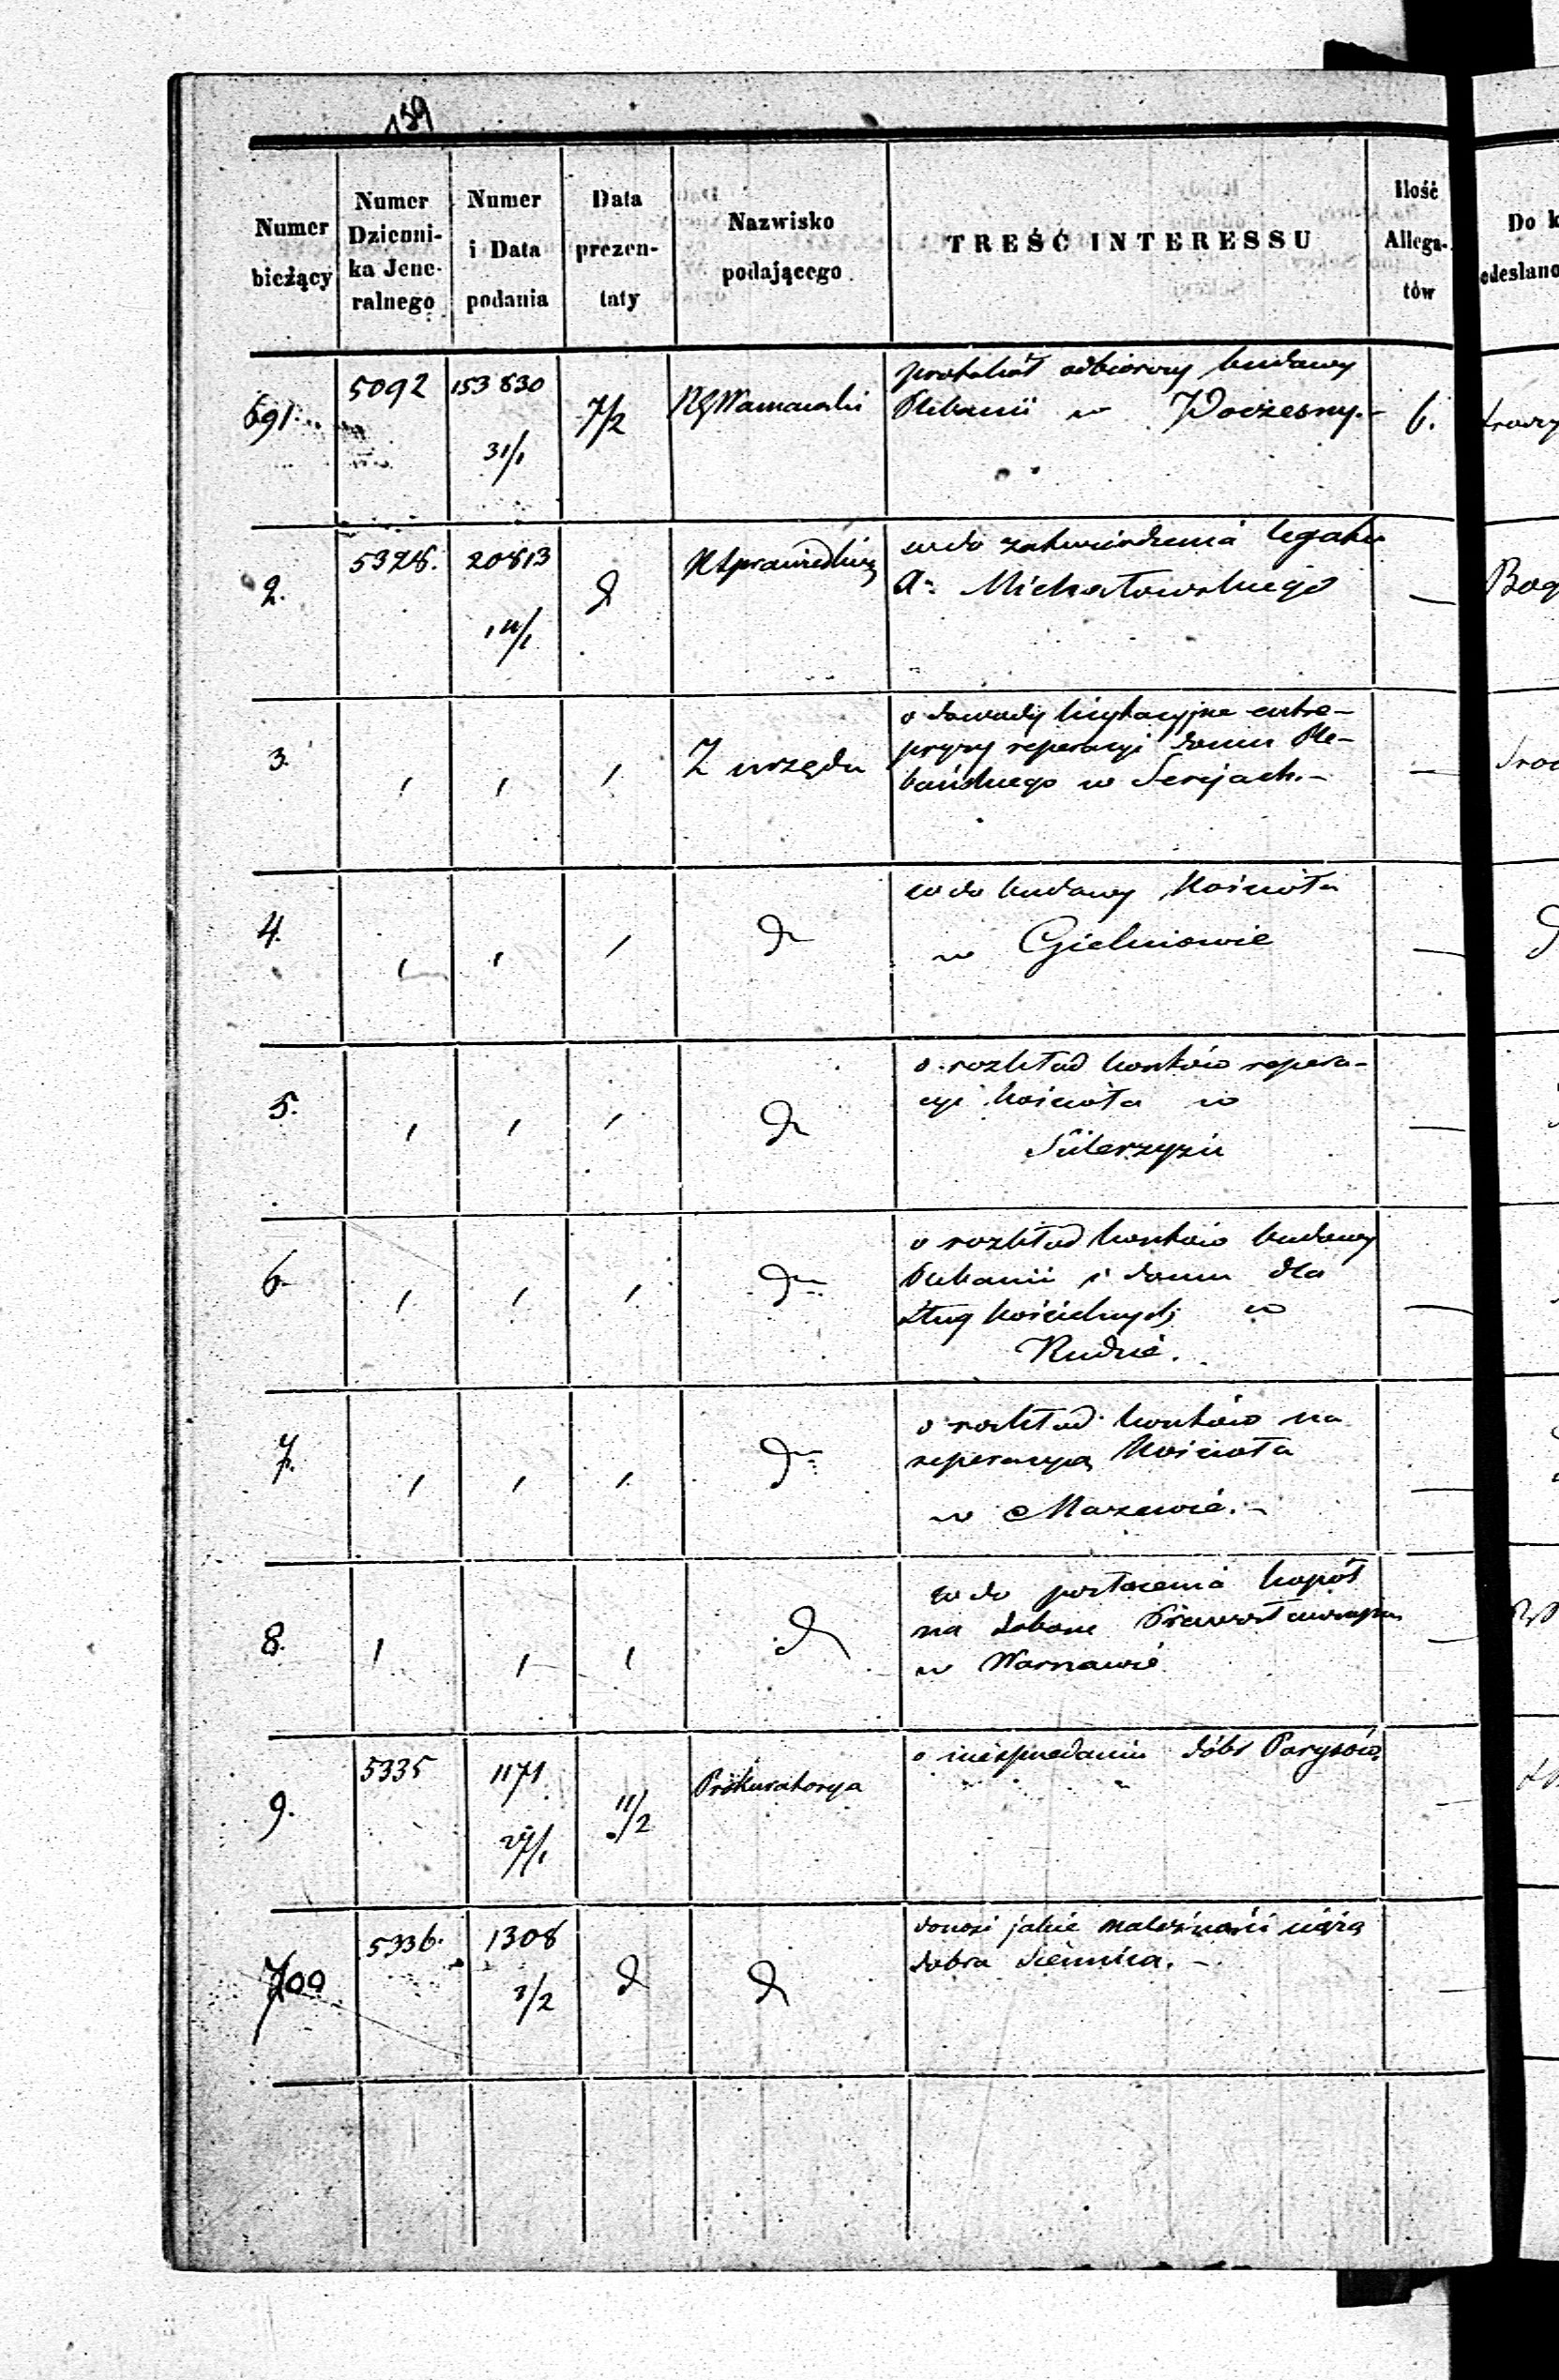 139
Numer bieżący | Numer Dzienni- ka Jene- ralnego | Numer i Data podania | Data prezen- taty | Nazwisko podającego | TREŚĆ INTERESSU | Ilość Allega- tów | Do k odesłano
691. | 5092 | 153830 31/1 | 7/2 | RGWarszawski | protokół odbiorczy budowy
Plebanii w | 6.
2. | 5328. | 20813 | d | KSprawiedliwości | co do zatwierdzenia legatu
Michałowskiego | — | Bog
3. | " | " | " | Z urzędu | o dowody licytacyjne entre-
pryzy reperacyi domu Ple-
bańskiego w Serejach.— | —
4. | " | " | " | do | co do budowy Kościoła
w Gielniowie | —
5. | " | " | " | do | o rozkład kosztów repera-
cyi kościoła w | —
6. | " | " | " | do | o rozkład kosztów budowy
Plebanii i domu dla
sług kościelnych w
Rudzie. | —
7. | " | " | " | do | o rozkład kosztów na
reperacyą Kościoła
w Mazewie.— | —
8. | " | " | " | do | co do
na
w Warszawie | —
9. | 5335 | 1171 27/1 | 11/2 | Prokuratorya | o niesprzedaniu dóbr Parysów | —
700 | 5336. | 1308 3/2 | d | d | donosi jakie należności ciążą
dobra Siennica.— | —